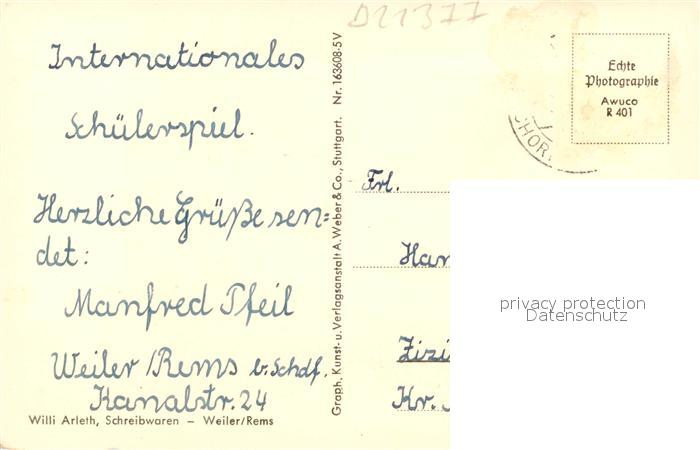 D21377
Internationales
Schülerspiel.
Herzliche Grüße sen=
det:
Manfred Pfeil
Weiler /Rems b. Schdf.
Kanalstr. 24
Willi Arleth, Schreibwaren – Weiler/Rems
Graph. Kunst- u. Verlagsanstalt A. Weber & Co., Stuttgart. Nr. 163608-5V
Echte
Photographie
Awuco
R 401
CHOR
Frl.
Han
Zizi
Kr.
privacy protection
Datenschutz